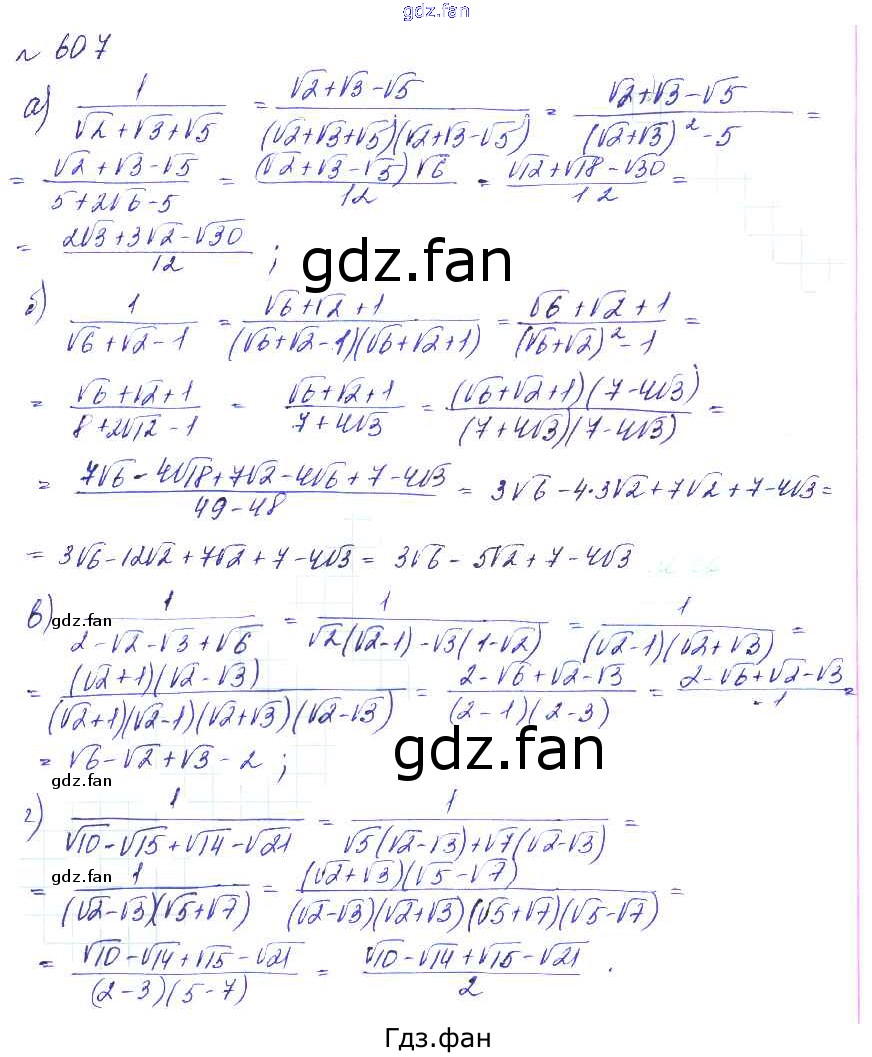 gdz.fan
№ 607
а) 1/(√2+√3+√5) = (√2+√3-√5)/((√2+√3+√5)(√2+√3-√5)) = (√2+√3-√5)/((√2+√3)²-5) =
= (√2+√3-√5)/(5+2√6-5) = ((√2+√3-√5)√6)/12 = (√12+√18-√30)/12 =
= (2√3+3√2-√30)/12 ;
gdz.fan
б) 1/(√6+√2-1) = (√6+√2+1)/((√6+√2-1)(√6+√2+1)) = (√6+√2+1)/((√6+√2)²-1) =
= (√6+√2+1)/(8+2√12-1) = (√6+√2+1)/(7+4√3) = ((√6+√2+1)(7-4√3))/((7+4√3)(7-4√3)) =
= (7√6-4√18+7√2-4√6+7-4√3)/(49-48) = 3√6-4·3√2+7√2+7-4√3 =
= 3√6-12√2+7√2+7-4√3 = 3√6-5√2+7-4√3
в) 1/(2-√2-√3+√6) = 1/(√2(√2-1)-√3(1-√2)) = 1/((√2-1)(√2+√3)) =
gdz.fan
= ((√2+1)(√2-√3))/((√2+1)(√2-1)(√2+√3)(√2-√3)) = (2-√6+√2-√3)/((2-1)(2-3)) = (2-√6+√2-√3)/-1 =
= √6-√2+√3-2 ;
gdz.fan
gdz.fan
г) 1/(√10-√15+√14-√21) = 1/(√5(√2-√3)+√7(√2-√3)) =
gdz.fan
= 1/((√2-√3)(√5+√7)) = ((√2+√3)(√5-√7))/((√2-√3)(√2+√3)(√5+√7)(√5-√7)) =
= (√10-√14+√15-√21)/((2-3)(5-7)) = (√10-√14+√15-√21)/2 .
Гдз.фан